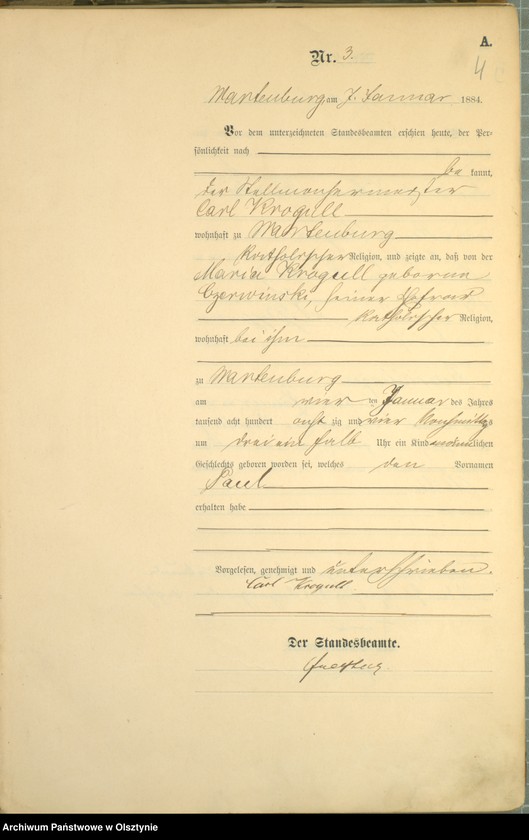 A.
4
Nr. 3.
Wartenburg, am 7. Januar 1884.
Vor dem unterzeichneten Standesbeamten erschien heute, der Per-
sönlichkeit nach
be kannt,
der Stellmachermeister
Carl Krogull
wohnhaft zu Wartenburg
katholischer Religion, und zeigte an, daß von der
Maria Krogull geborene
Czerwinski, seiner Ehefrau
katholischer Religion,
wohnhaft bei ihm
zu Wartenburg
am vier ten Januar des Jahres
tausend acht hundert acht zig und vier Nachmittags
um drei ein halb Uhr ein Kind männlichen
Geschlechts geboren worden sei, welches den Vornamen
Paul
erhalten habe
Vorgelesen, genehmigt und unterschrieben.
Carl Krogull
Der Standesbeamte.
Archiwum Państwowe w Olsztynie